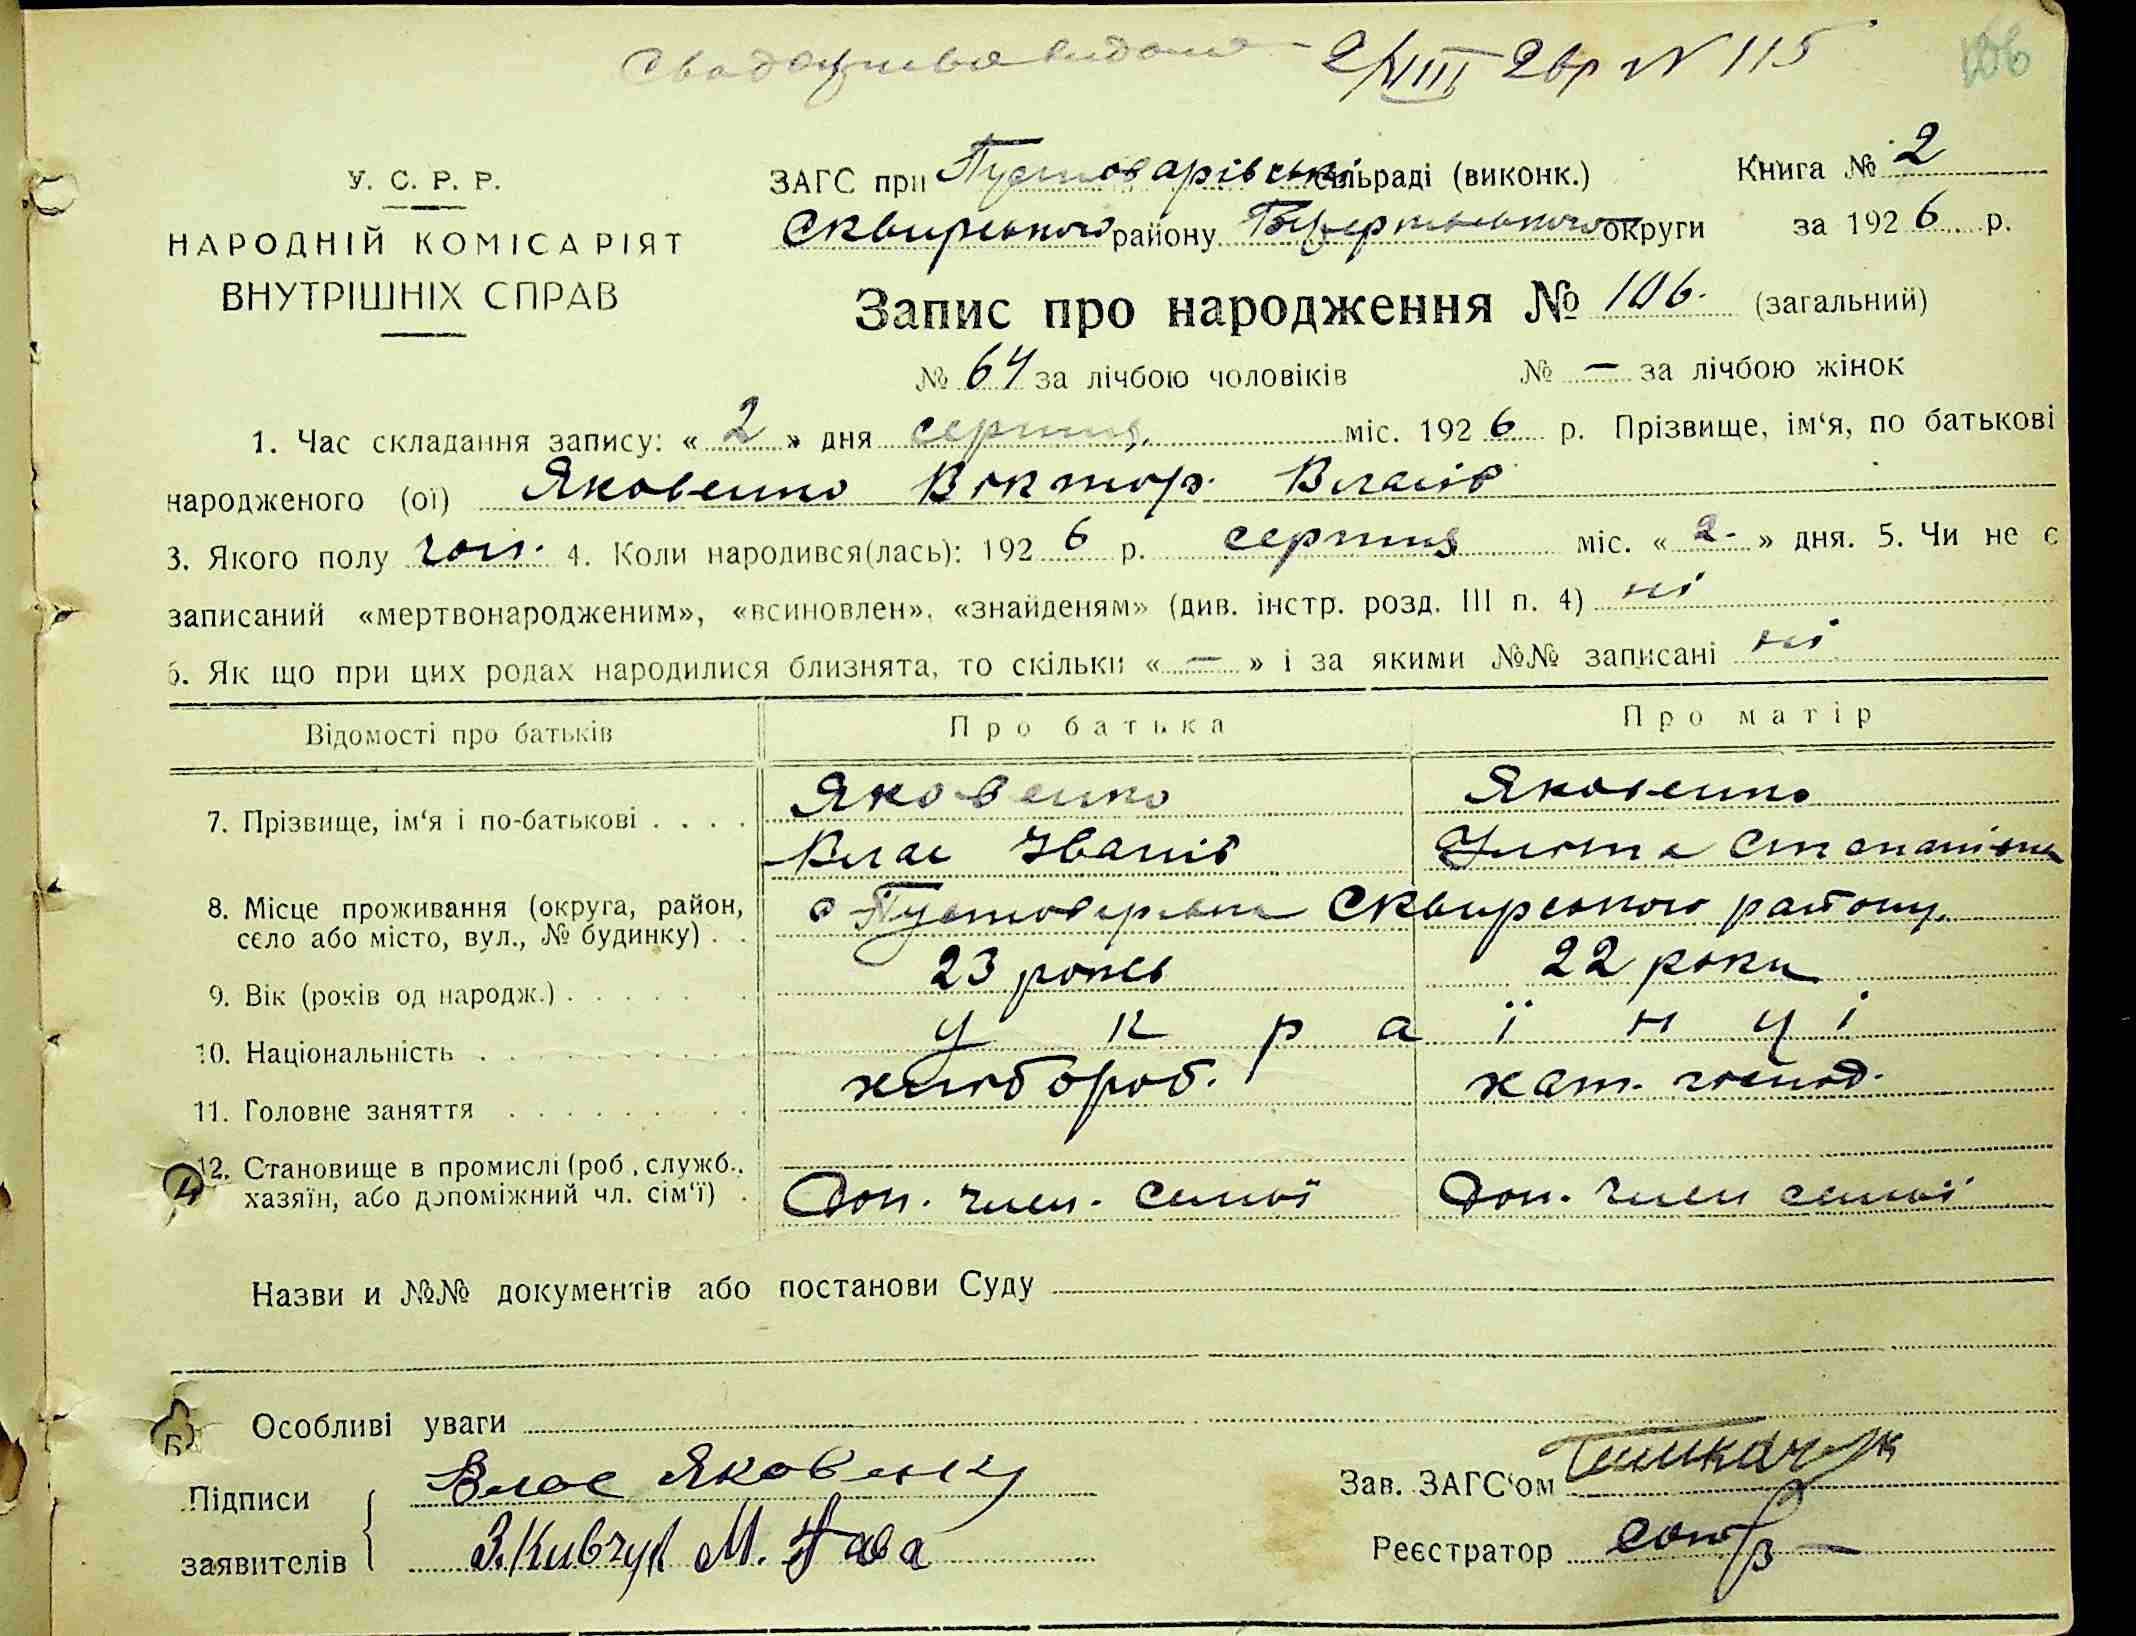 2/VIII 26р № 115
106
У. С. Р. Р.
НАРОДНІЙ КОМІСАРІЯТ
ВНУТРІШНІХ СПРАВ
ЗАГС при Пустоварівській сільраді (виконк.) Книга № 2
Сквирського району Білоцерківського округи за 1926 р.
Запис про народження № 106. (загальний)
№ 64 за лічбою чоловіків № — за лічбою жінок
1. Час складання запису: « 2 » дня серпня. міс. 1926 р. Прізвище, ім‘я, по батькові
народженого (ої) Яковенко Віктор Власів
3. Якого полу чол. 4. Коли народився(лась): 1926 р. серпня міс. « 2 » дня. 5. Чи не є
записаний «мертвонародженим», «всиновлен», «знайденям» (див. інстр. розд. III п. 4) ні
6. Як що при цих родах народилися близнята, то скільки « — » і за якими №№ записані ні
Відомості про батьків Про батька Про матір
7. Прізвище, ім‘я і по-батькові . . . . Яковенко Яковенко
Влас Іванів Степанівна
8. Місце проживання (округа, район,
село або місто, вул., № будинку) . . с Пустоварівка Сквирського району.
9. Вік (років од народж.) . . . . . 23 років 22 роки
10. Національність . . . . . українці
11. Головне заняття . . . . . хлібороб. хат. господ.
12. Становище в промислі (роб., служб.,
хазяїн, або допоміжний чл. сім‘ї) . Доп. член. семьї Доп. член семьї
4
Назви и №№ документів або постанови Суду
Особливі уваги
Б
Підписи Влас Яковенко
заявителів З. Кивчук М.
Зав. ЗАГС‘ом
Реєстратор